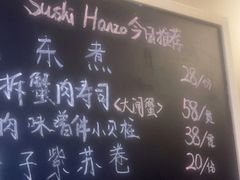 Sushi Hanzo 今日推荐
东煮 28/份
拆蟹肉寿司<大闸蟹> 58/贯
肉味噌伴小贝柱 38/份
子紫苏卷 20/份